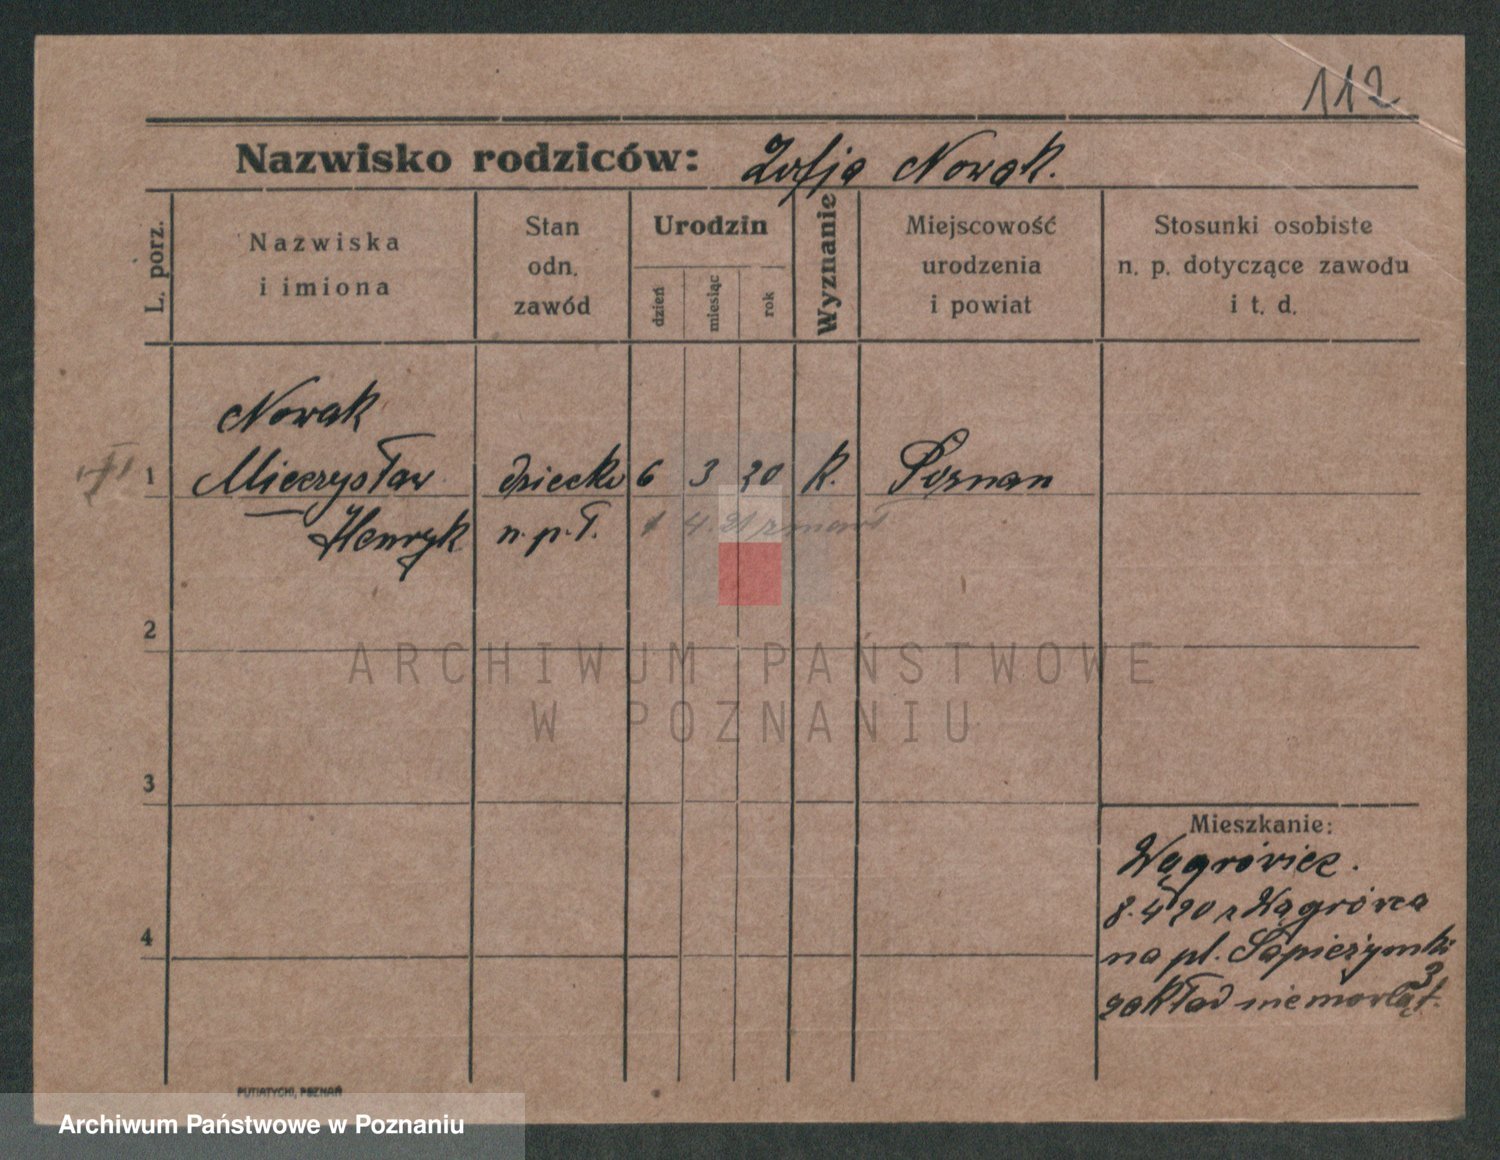 112
Nazwisko rodziców: Zofja Nowak.
L. porz.
Nazwiska
i imiona
Stan
odn.
zawód
Urodzin
dzień
miesiąc
rok
Wyznanie
Miejscowość
urodzenia
i powiat
Stosunki osobiste
n. p. dotyczące zawodu
i t. d.
Nowak
1 Mieczysław dziecko 6 3 20 k. Poznan
Henryk n. p. ł. 4. 21 zmarł
2
ARCHIWUM PAŃSTWOWE
W POZNANIU
3
4
Mieszkanie:
Wągrówiec.
8. 4 20 z Wągrówca
na pl. Sapieżynski
3
zakład niemowląt.
PUTIATYCKI, POZNAŃ
Archiwum Państwowe w Poznaniu